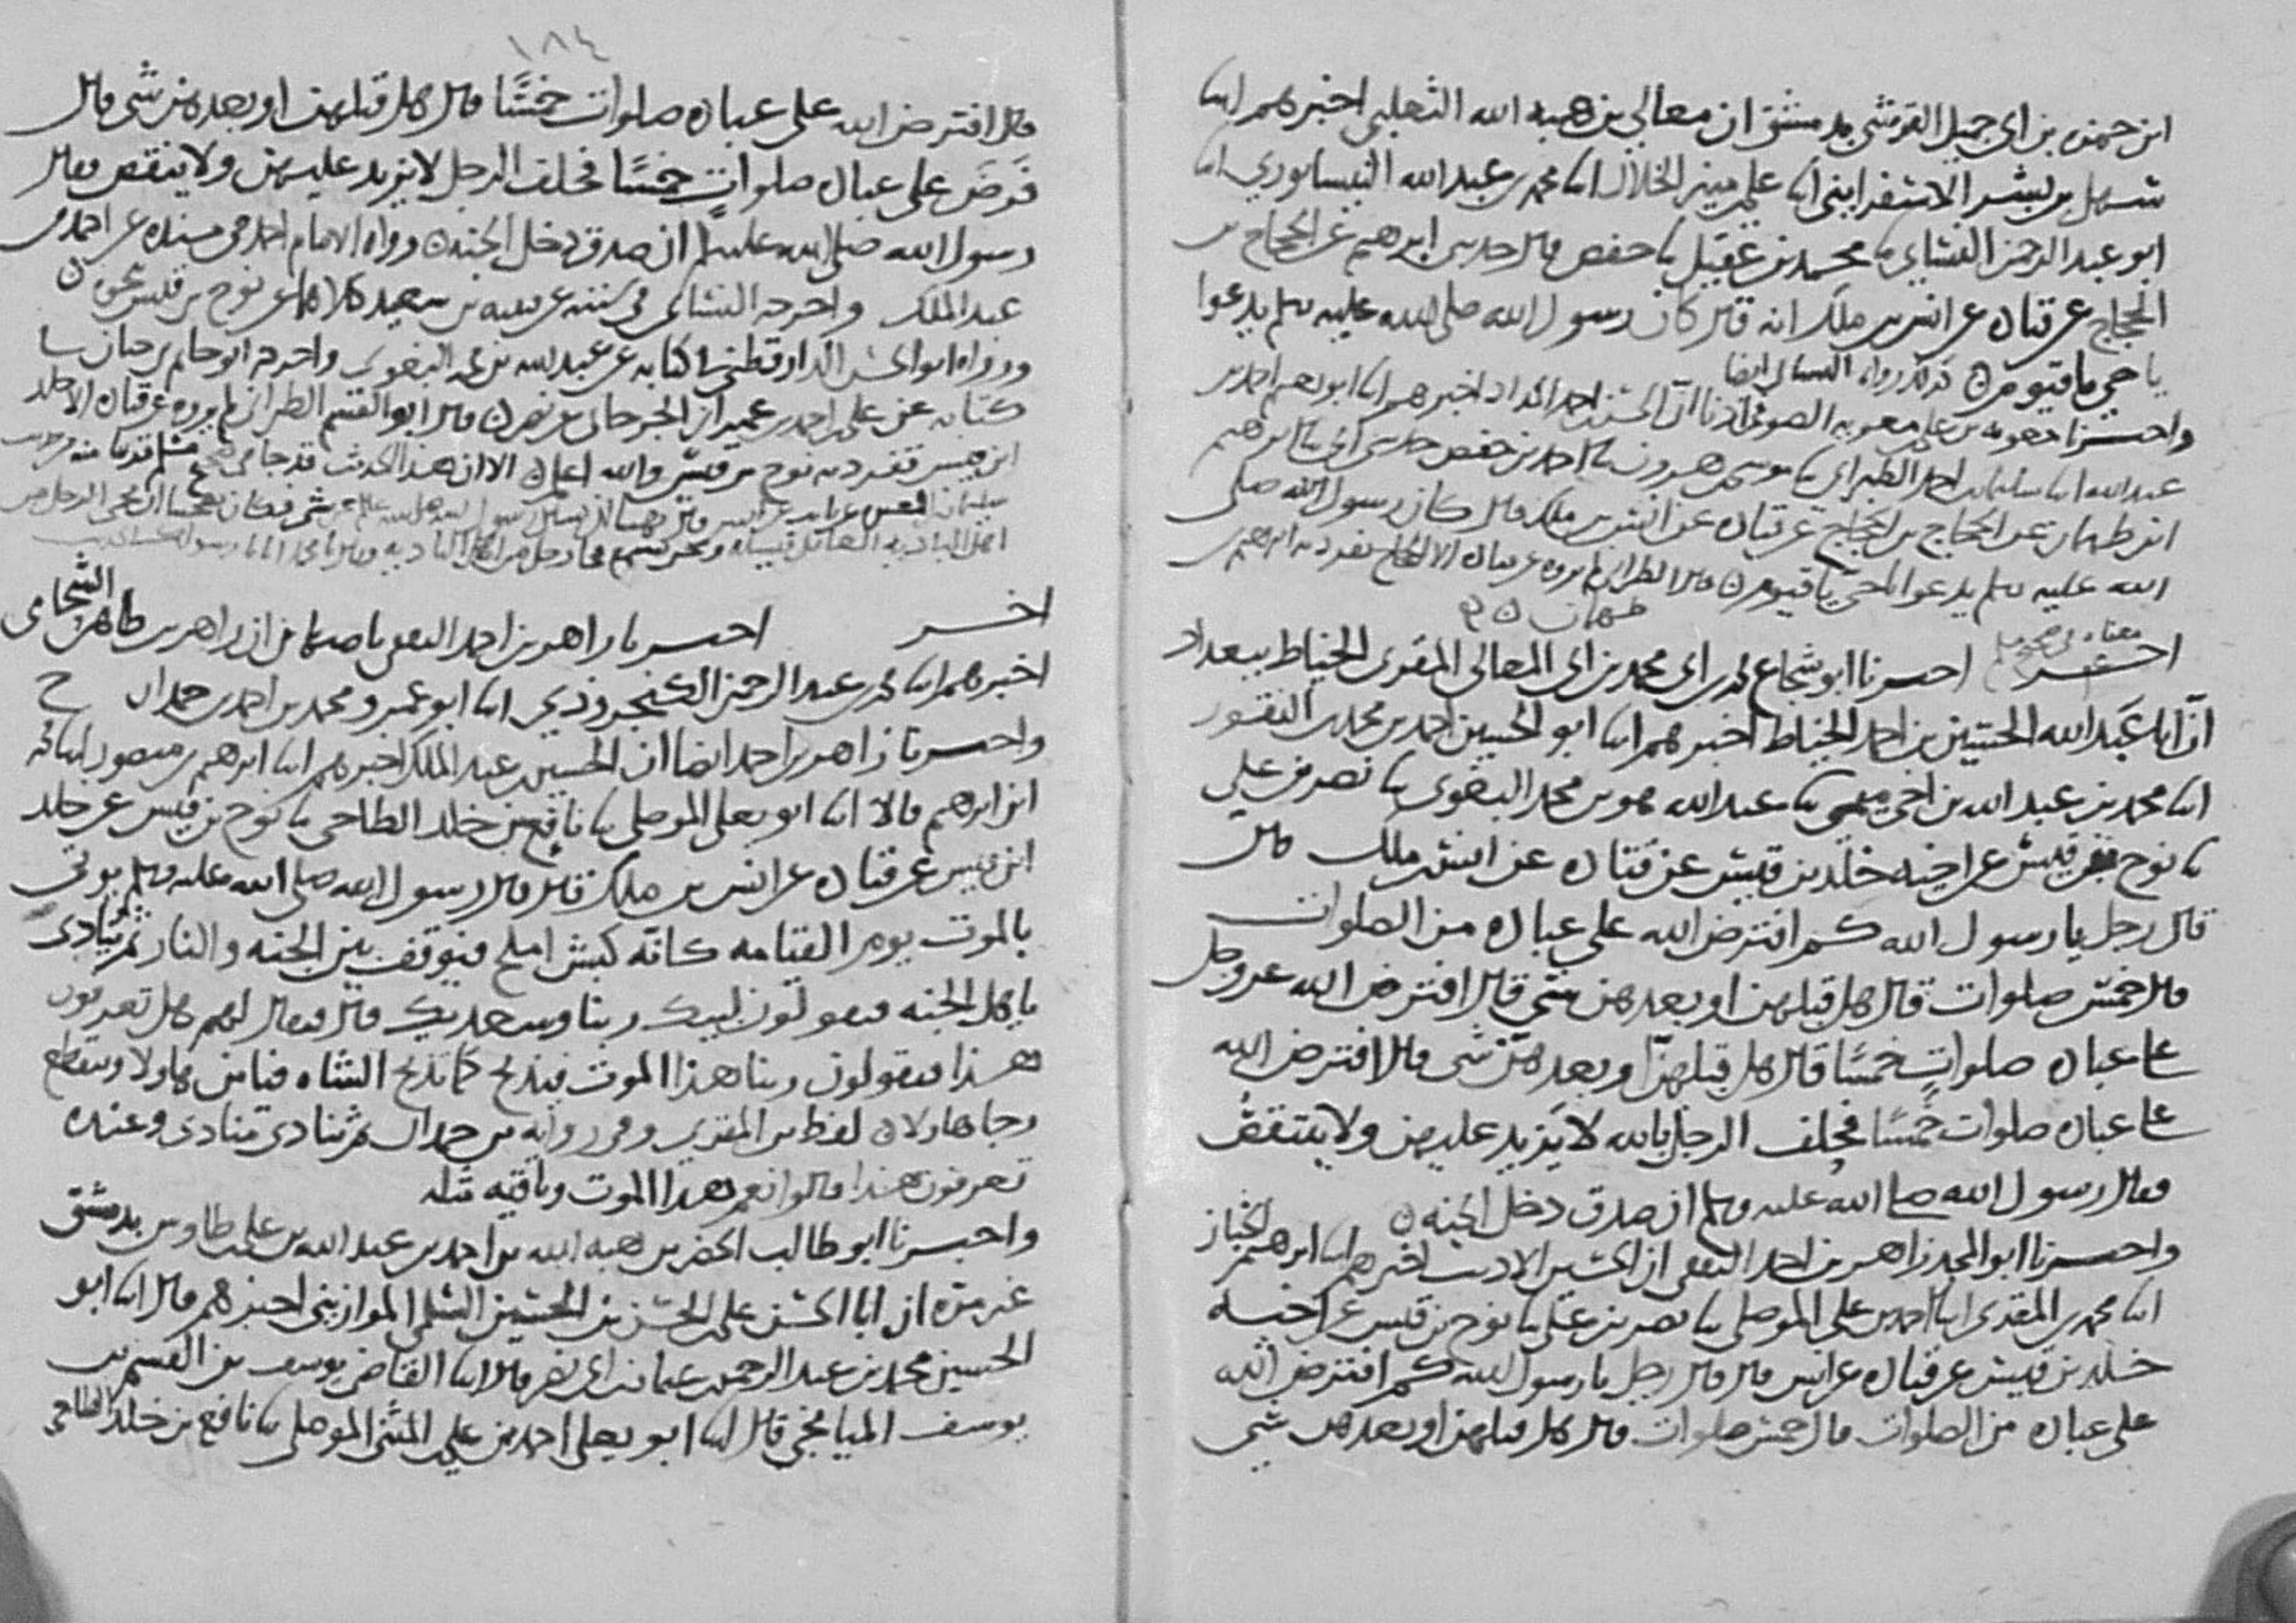 ابن حمزه بن ابي جميل القرشي بدمشق ان معالي بن هبه الله الثعلبي اخبرهم ابنا
سهل بن بشر الاسفرايني ابنا علي بن منير الخلال ابنا محمد بن عبد الله النيسابوري ابنا
ابو عبد الرحمن النسائي نا محمد بن عقيل نا حفص قال حدثني ابرهيم عن الحجاج بن
الحجاج عن قتاده عن انس بن ملك انه قال كان رسول الله صلى الله عليه وسلم يدعوا
يا حي يا قيوم كذلك رواه النسائي ايضا
واخبرنا معويه بن علي بن معويه الصوفي ان الحسن بن احمد الحداد اخبرهم ابنا ابو نعيم احمد بن
عبد الله ابنا سليمان بن احمد الطبراني نا موسى بن هرون نا احمد بن حفص حدثني ابي نا ابرهيم
ابن طهمان عن الحجاج بن الحجاج عن قتاده عن انس بن ملك قال كان رسول الله صلى
الله عليه وسلم يدعوا يا حي يا قيوم قال الطبراني لم يروه عن قتاده الا الحجاج تفرد به ابرهيم بن
طهمان
معناه في صحيح مسلم
اخـــر اخبرنا ابو شجاع محمد بن ابي محمد بن ابي المعالي المقرى الخياط ببغداد
ان ابا عبد الله الحسين بن احمد الخياط اخبرهم ابنا ابو الحسين احمد بن محمد بن النقور
ابنا محمد بن عبد الله بن اخي ميمي نا عبد الله هو بن محمد البغوي نا نصر بن علي
نا نوح بن قيس عن اخيه خلد بن قيس عن قتاده عن انس بن ملك قال
قال رجل يا رسول الله كم افترض الله على عباده من الصلوات
قال خمس صلوات قال هل قبلهن او بعدهن شي قال افترض الله عز وجل
على عباده صلوات خمسا قال هل قبلهن او بعدهن شي قال افترض الله
على عباده صلوات خمسا فحلف الرجل بالله لا يزيد عليهن ولا ينتقص
فقال رسول الله صلى الله عليه وسلم ان صدق دخل الجنه
واخبرنا ابو المجد زاهر بن احمد الثقفي ان الحسين الاديب اخبرهم ابنا ابرهيم الخباز
ابنا محمد بن المقري ابنا احمد بن علي الموصلي نا نصر بن علي نا نوح بن قيس عن اخيه
خلد بن قيس عن قتاده عن انس قال قال رجل يا رسول الله كم افترض الله
على عباده من الصلوات قال خمس صلوات قال هل قبلهن او بعدهن شي
١٨٤
قال افترض الله على عباده صلوات خمسا قال هل قبلهن او بعدهن شي قال
فرض على عباده صلوات خمسا فحلف الرجل لا يزيد عليهن ولا ينقص فقال
رسول الله صلى الله عليه وسلم ان صدق دخل الجنه رواه الامام احمد في مسنده عن احمد بن
عبد الملك واخرجه النسائي في سننه عن قتيبه بن سعيد كلاهما عن نوح بن قيس نحوه
ورواه ابو الحسن الدارقطني في كتابه عن عبد الله بن محمد البغوي واخرجه ابو حاتم بن حبان في
كتابه عن علي بن احمد بن عمران الجرجاني عن نصر قال ابو القسم الطبراني لم يروه عن قتاده الا خلد
ابن قيس تفرد به نوح بن قيس والله اعلم الا ان هذا الحديث قد جا في صحيح مسلم
سليمان بن المغيره عن ثابت عن انس قال نهينا ان نسل رسول الله صلى الله عليه عن شي فكان يعجبنا ان يجي الرجل من
اهل الباديه العاقل فيسله ونحن نسمع فجا رجل من اهل الباديه
اخـــر اخبرنا زاهر بن احمد الثقفي باصبهان ان زاهر بن طاهر الشحامي
اخبرهم ابنا محمد بن عبد الرحمن الكنجروذي ابنا ابو عمرو محمد بن احمد بن حمدان ح
واخبرنا زاهر بن احمد ايضا ان الحسين بن عبد الملك اخبرهم ابنا ابرهيم بن منصور ابنا محمد
ابن ابرهيم قالا ابنا ابو يعلى الموصلي نا نافع بن خلد الطاحي نا نوح بن قيس عن خلد
ابن قيس عن قتاده عن انس بن ملك قال قال رسول الله صلى الله عليه وسلم يوتى
بالموت يوم القيامه كانه كبش املح فيوقف بين الجنه والنار ثم ينادى
يا هل الجنه فيقولون لبيك ربنا وسعديك قال فيقال لهم هل تعرفون
هذا فيقولون ربنا هذا الموت فيذبح كما تذبح الشاه فيامن هاولا وينقطع
رجا هاولا لفظ بن المقري وفي روايه بن حمدان ثم ينادي منادي وعنده
تعرفون هذا قالوا نعم هذا الموت وباقيه مثله
واخبرنا ابو طالب الخضر بن هبه الله بن احمد بن عبد الله بن علي بن طاوس بدمشق
غير مره ان ابا الحسن علي بن الحسن بن الحسين السلمي الموازيني اخبرهم قال ابنا ابو
الحسين محمد بن عبد الرحمن بن عثمان بن ابي نصر قال ابنا القاضي يوسف بن القسم بن
يوسف الميانجي قال ابنا ابو يعلى احمد بن علي بن المثنى الموصلي نا نافع بن خلد الطاحي